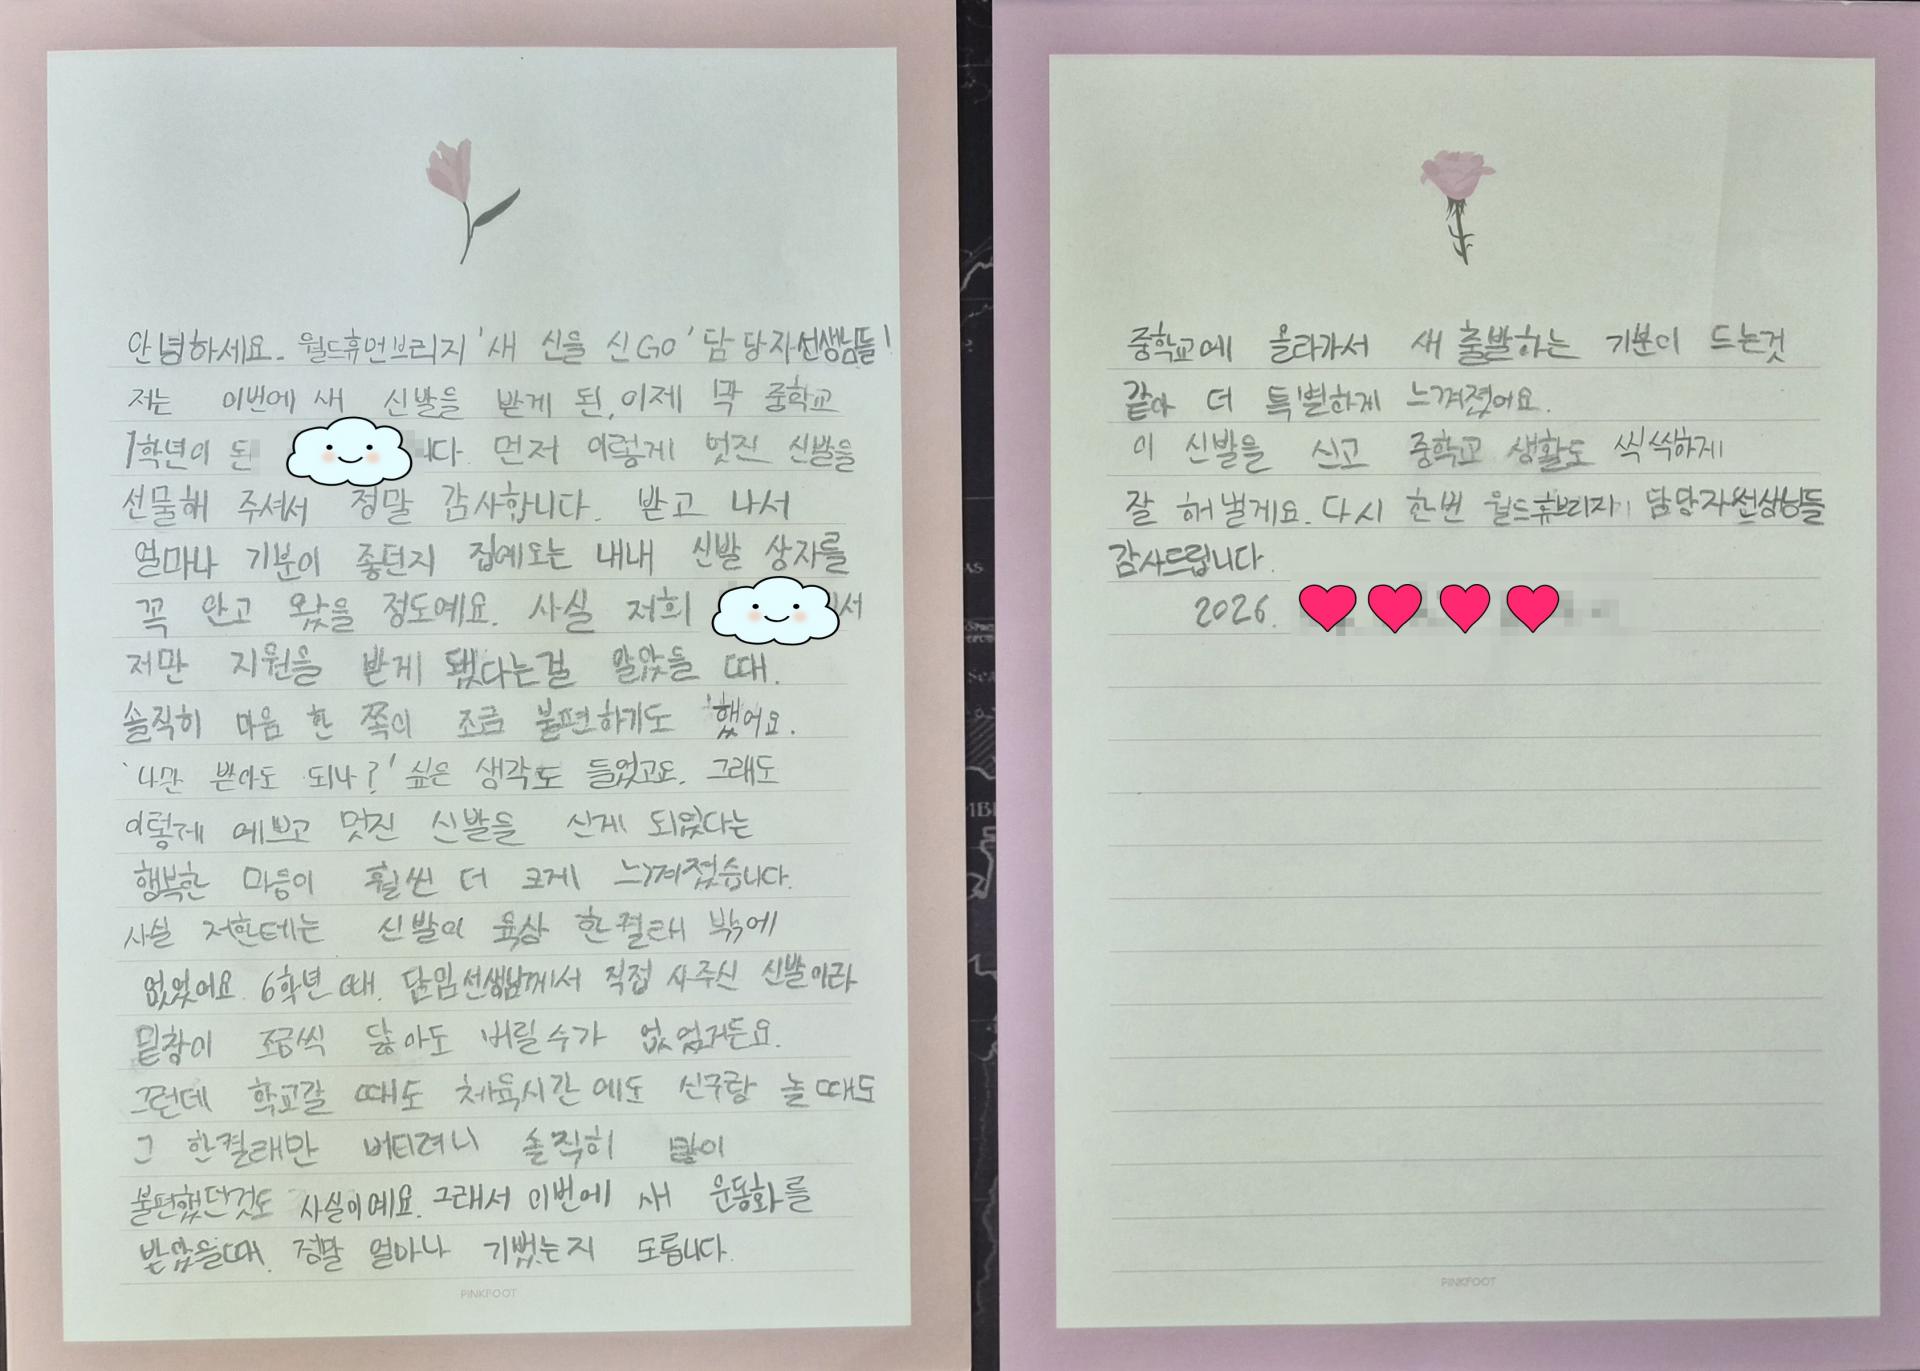 안녕하세요. 월드휴먼브리지 '새 신을 신GO' 담당자선생님들!
저는 이번에 새 신발을 받게 된, 이제 막 중학교
1학년이 된 니다. 먼저 이렇게 멋진 신발을
선물해 주셔서 정말 감사합니다. 받고 나서
얼마나 기분이 좋던지 집에오는 내내 신발 상자를
꼭 안고 왔을 정도예요. 사실 저희 서
저만 지원을 받게 됐다는걸 알았을 때.
솔직히 마음 한 쪽이 조금 불편하기도 했어요.
'나만 받아도 되나?' 싶은 생각도 들었고요. 그래도
이렇게 예쁘고 멋진 신발을 신게 되었다는
행복한 마음이 훨씬 더 크게 느껴졌습니다.
사실 저한테는 신발이 육상 한켤레 밖에
없었어요. 6학년 때. 담임선생님께서 직접 사주신 신발이라
밑창이 조금씩 닳아도 버릴수가 없었거든요.
그런데 학교갈 때도 체육시간에도 친구랑 놀때도
그 한켤레만 버티려니 솔직히 많이
불편했던것도 사실이에요. 그래서 이번에 새 운동화를
받았을때. 정말 얼마나 기뻤는지 모릅니다.
PINKFOOT
중학교에 올라가서 새 출발하는 기분이 드는것
같아 더 특별하게 느껴졌어요.
이 신발을 신고 중학교 생활도 씩씩하게
잘 해 낼게요. 다시 한번 월드휴브리지 담당자선생님들
감사드립니다.
2026.
PINKFOOT